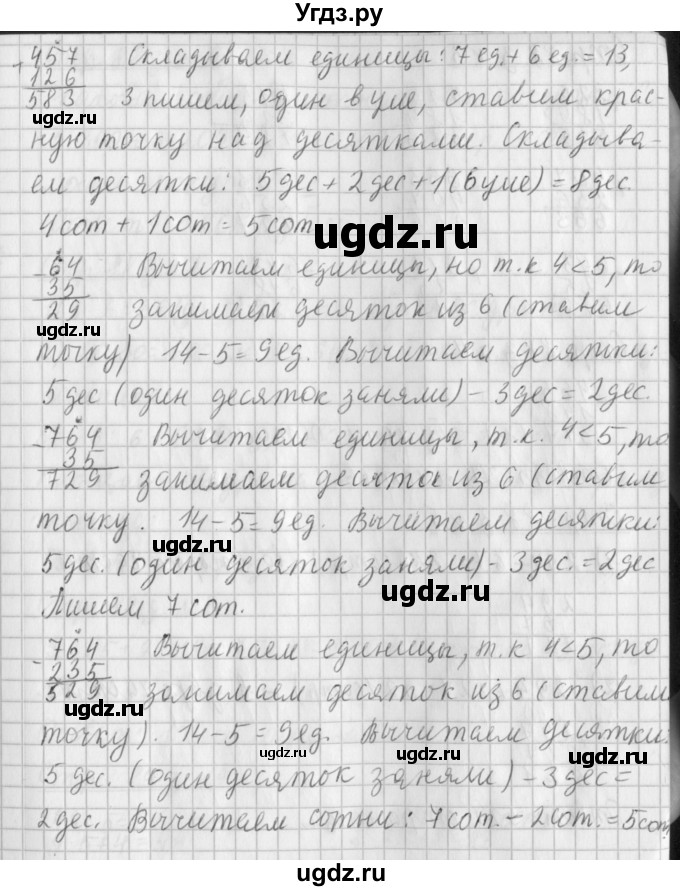 Угдз.ру
+457 Складываем единицы: 7 ед.+ 6 ед.= 13,
126
583 3 пишем, один в уме, ставим крас-
ную точку над десятками. Складыва-
ем десятки: 5дес + 2дес +1(в уме) = 8дес.
4сот + 1сот = 5сот
-64 Вычитаем единицы, но т.к 4<5, то
35
29 занимаем десяток из 6 (ставим
точку) 14-5=9ед. Вычитаем десятки:
5 дес (один десяток заняли) - 3дес = 2дес.
-764 Вычитаем единицы, т.к. 4<5, то
35
729 занимаем десяток из 6 (ставим
точку. 14-5=9ед. Вычитаем десятки:
5 дес. (один десяток заняли) - 3дес. = 2дес
Пишем 7 сот.
-764 Вычитаем единицы, т.к 4<5, то
235
529 занимаем десяток из 6 (ставим
точку). 14-5=9ед. Вычитаем десятки.
5 дес. (один десяток заняли) - 3дес =
2дес. Вычитаем сотни: 7сот. - 2сот. = 5сот.
ugdz.ru
ugdz.ru
ugdz.ru
ugdz.ru
ugdz.ru
ugdz.ru
ugdz.ru
ugdz.ru
ugdz.ru
ugdz.ru
ugdz.ru
ugdz.ru
ugdz.ru